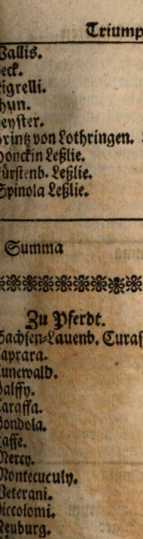 Triump
Wallis.
Beck.
Nigrelli.
Thun.
Keyster.
Printz von Lothringen.
Donckin Leßlie.
Fürstenb. Leßlie.
Spinola Leßlie.
Summa
Zu Pferdt.
Sachsen-Lauenb. Curas
Caprara.
Dunewald.
Palffy.
Caraffa.
Gondola.
Taffe.
Mercy.
Montecuculy.
Veterani.
Piccolomi.
Neuburg.